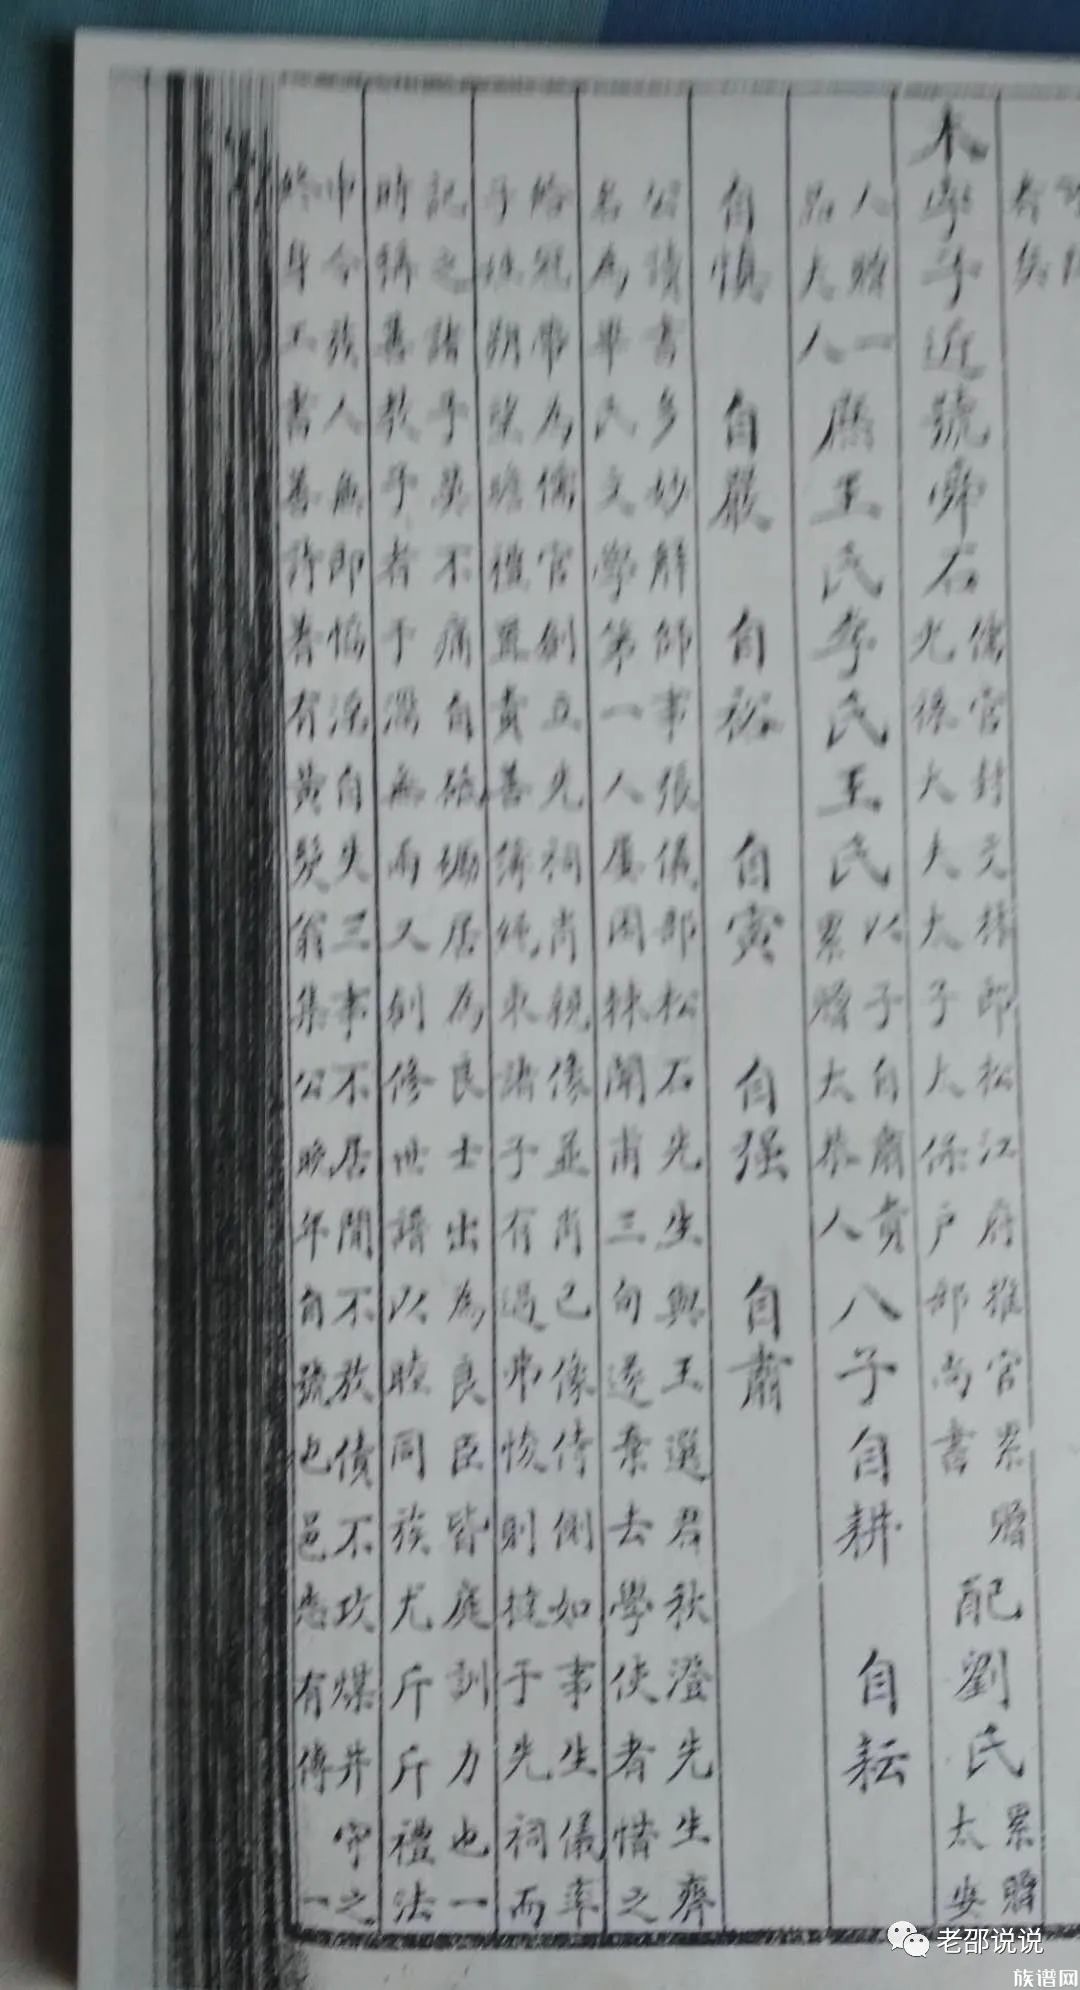 者矣
木字子近號舜石
儒官封文林郎松江府推官累贈
光祿大夫太子太保户部尚書
配劉氏
累贈
太安
人贈一
品夫人
應王氏李氏王氏
以子自肅貴
累贈太恭人
八子自耕 自耘
自慎 自嚴 自裕 自寅 自强 自肅
公讀書多妙解師事張儀部松石先生與王選君秋澄先生齊
名為畢氏文學第一人屢困棘闈甫三旬遂棄去學使者惜之
給冠帶為儒官創立先祠肖親像並肖己像侍側如事生儀率
子姓朔望瞻禮置責善簿束諸子有過常悛則撻于先祠而
記之諸子莫不痛自砥礪居為良士出為良臣皆庭訓力也一
時稱善教子者于無兩又創修世譜以睦同族尤斤斤禮法
申令族人無即慆淫自失三事不居間不放債不攻煤井守之
終身工書善詩著有黄髮翁集公晚年自號也邑志有傳 一
老邵说说
族谱网